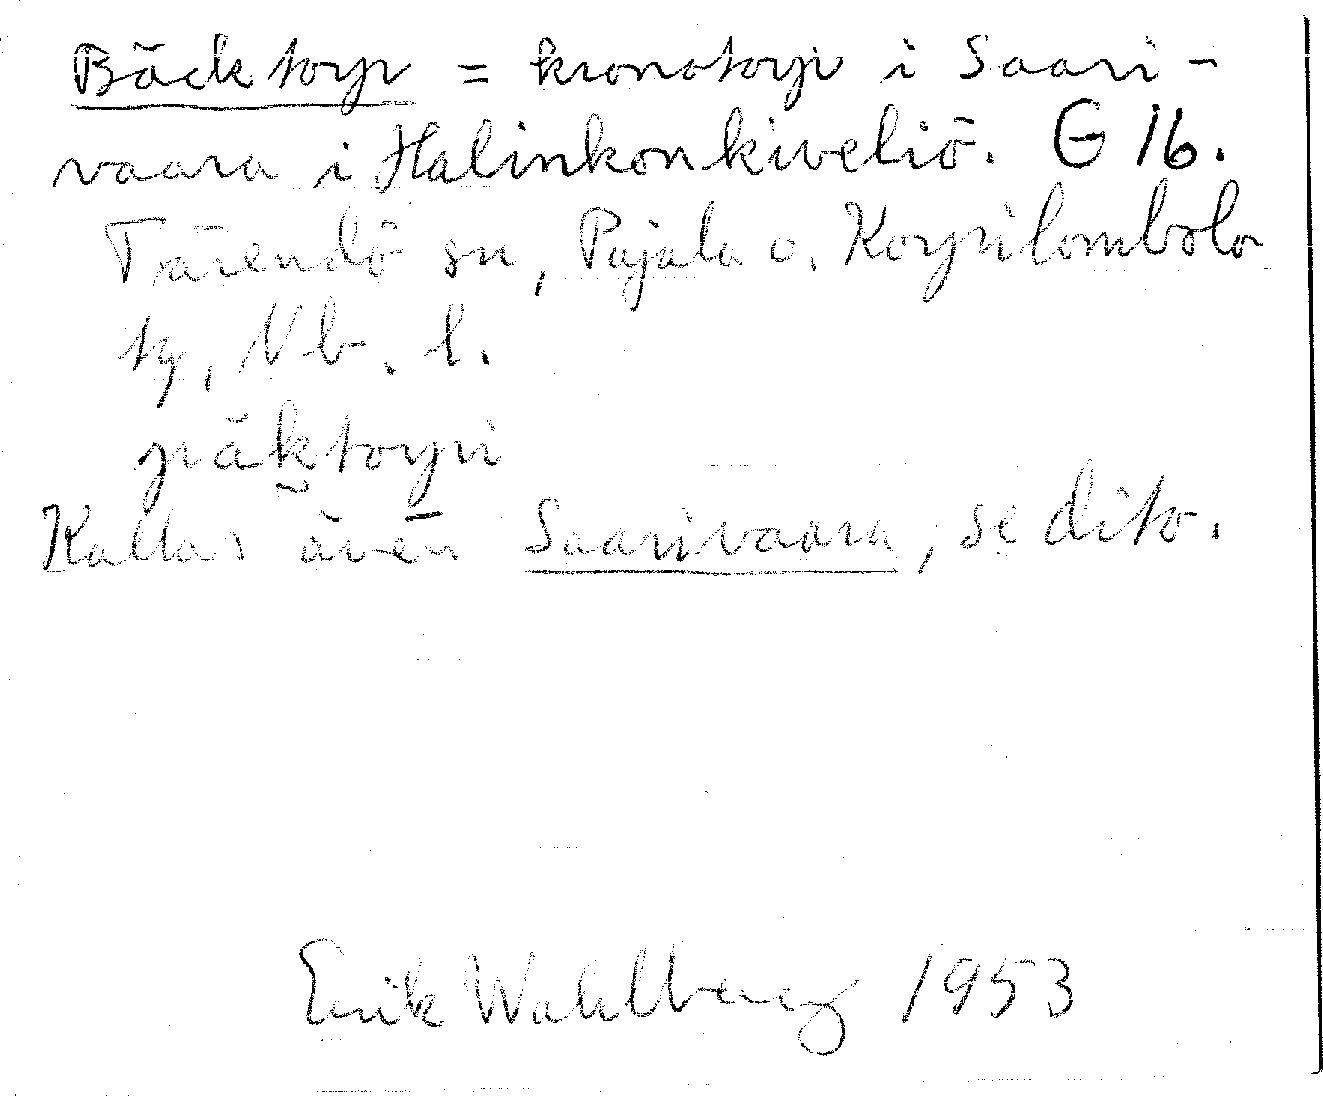 Bäcktorp = kronotorp i Saari-
vaara i Halinkonkiveliö. G 16.
Tärendö sn, Pajala o. Korpilombolo
tg, Nb. l.
päktorpi
Kallas även Saarivaara, se dito.
Erik Wahlberg 1953